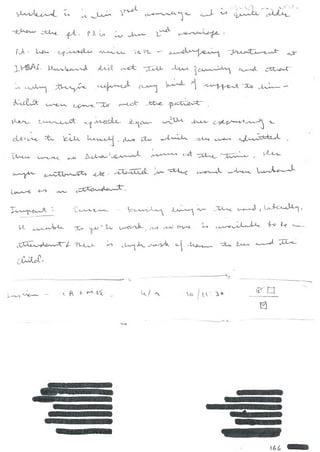 Husband is in his 2nd marriage and is quite older
than the pt. Pt is in her 2nd marriage.
Pt. has episodes since - undergoing treatment at
Husband did not tell his family and that
is why they've refused any kind of support to him -
didn't even come to meet the patient.
Her current episode began with her expressing a
desire to kill herself, due to which she was admitted.
There were no behavioural issues at the time. Her
anger outbursts etc. started in the ward when husband
came as an attendant.
Impact: - family living in the ward, literally.
H unable to go to work, as no one is available to be an
attendant & there is high risk of harm to her and the
child.
166